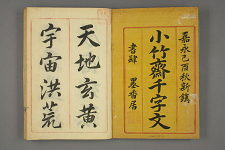 嘉永己酉秋新鐫
小竹齋千字文
書肆 墨香居
天地玄黄
宇宙洪荒